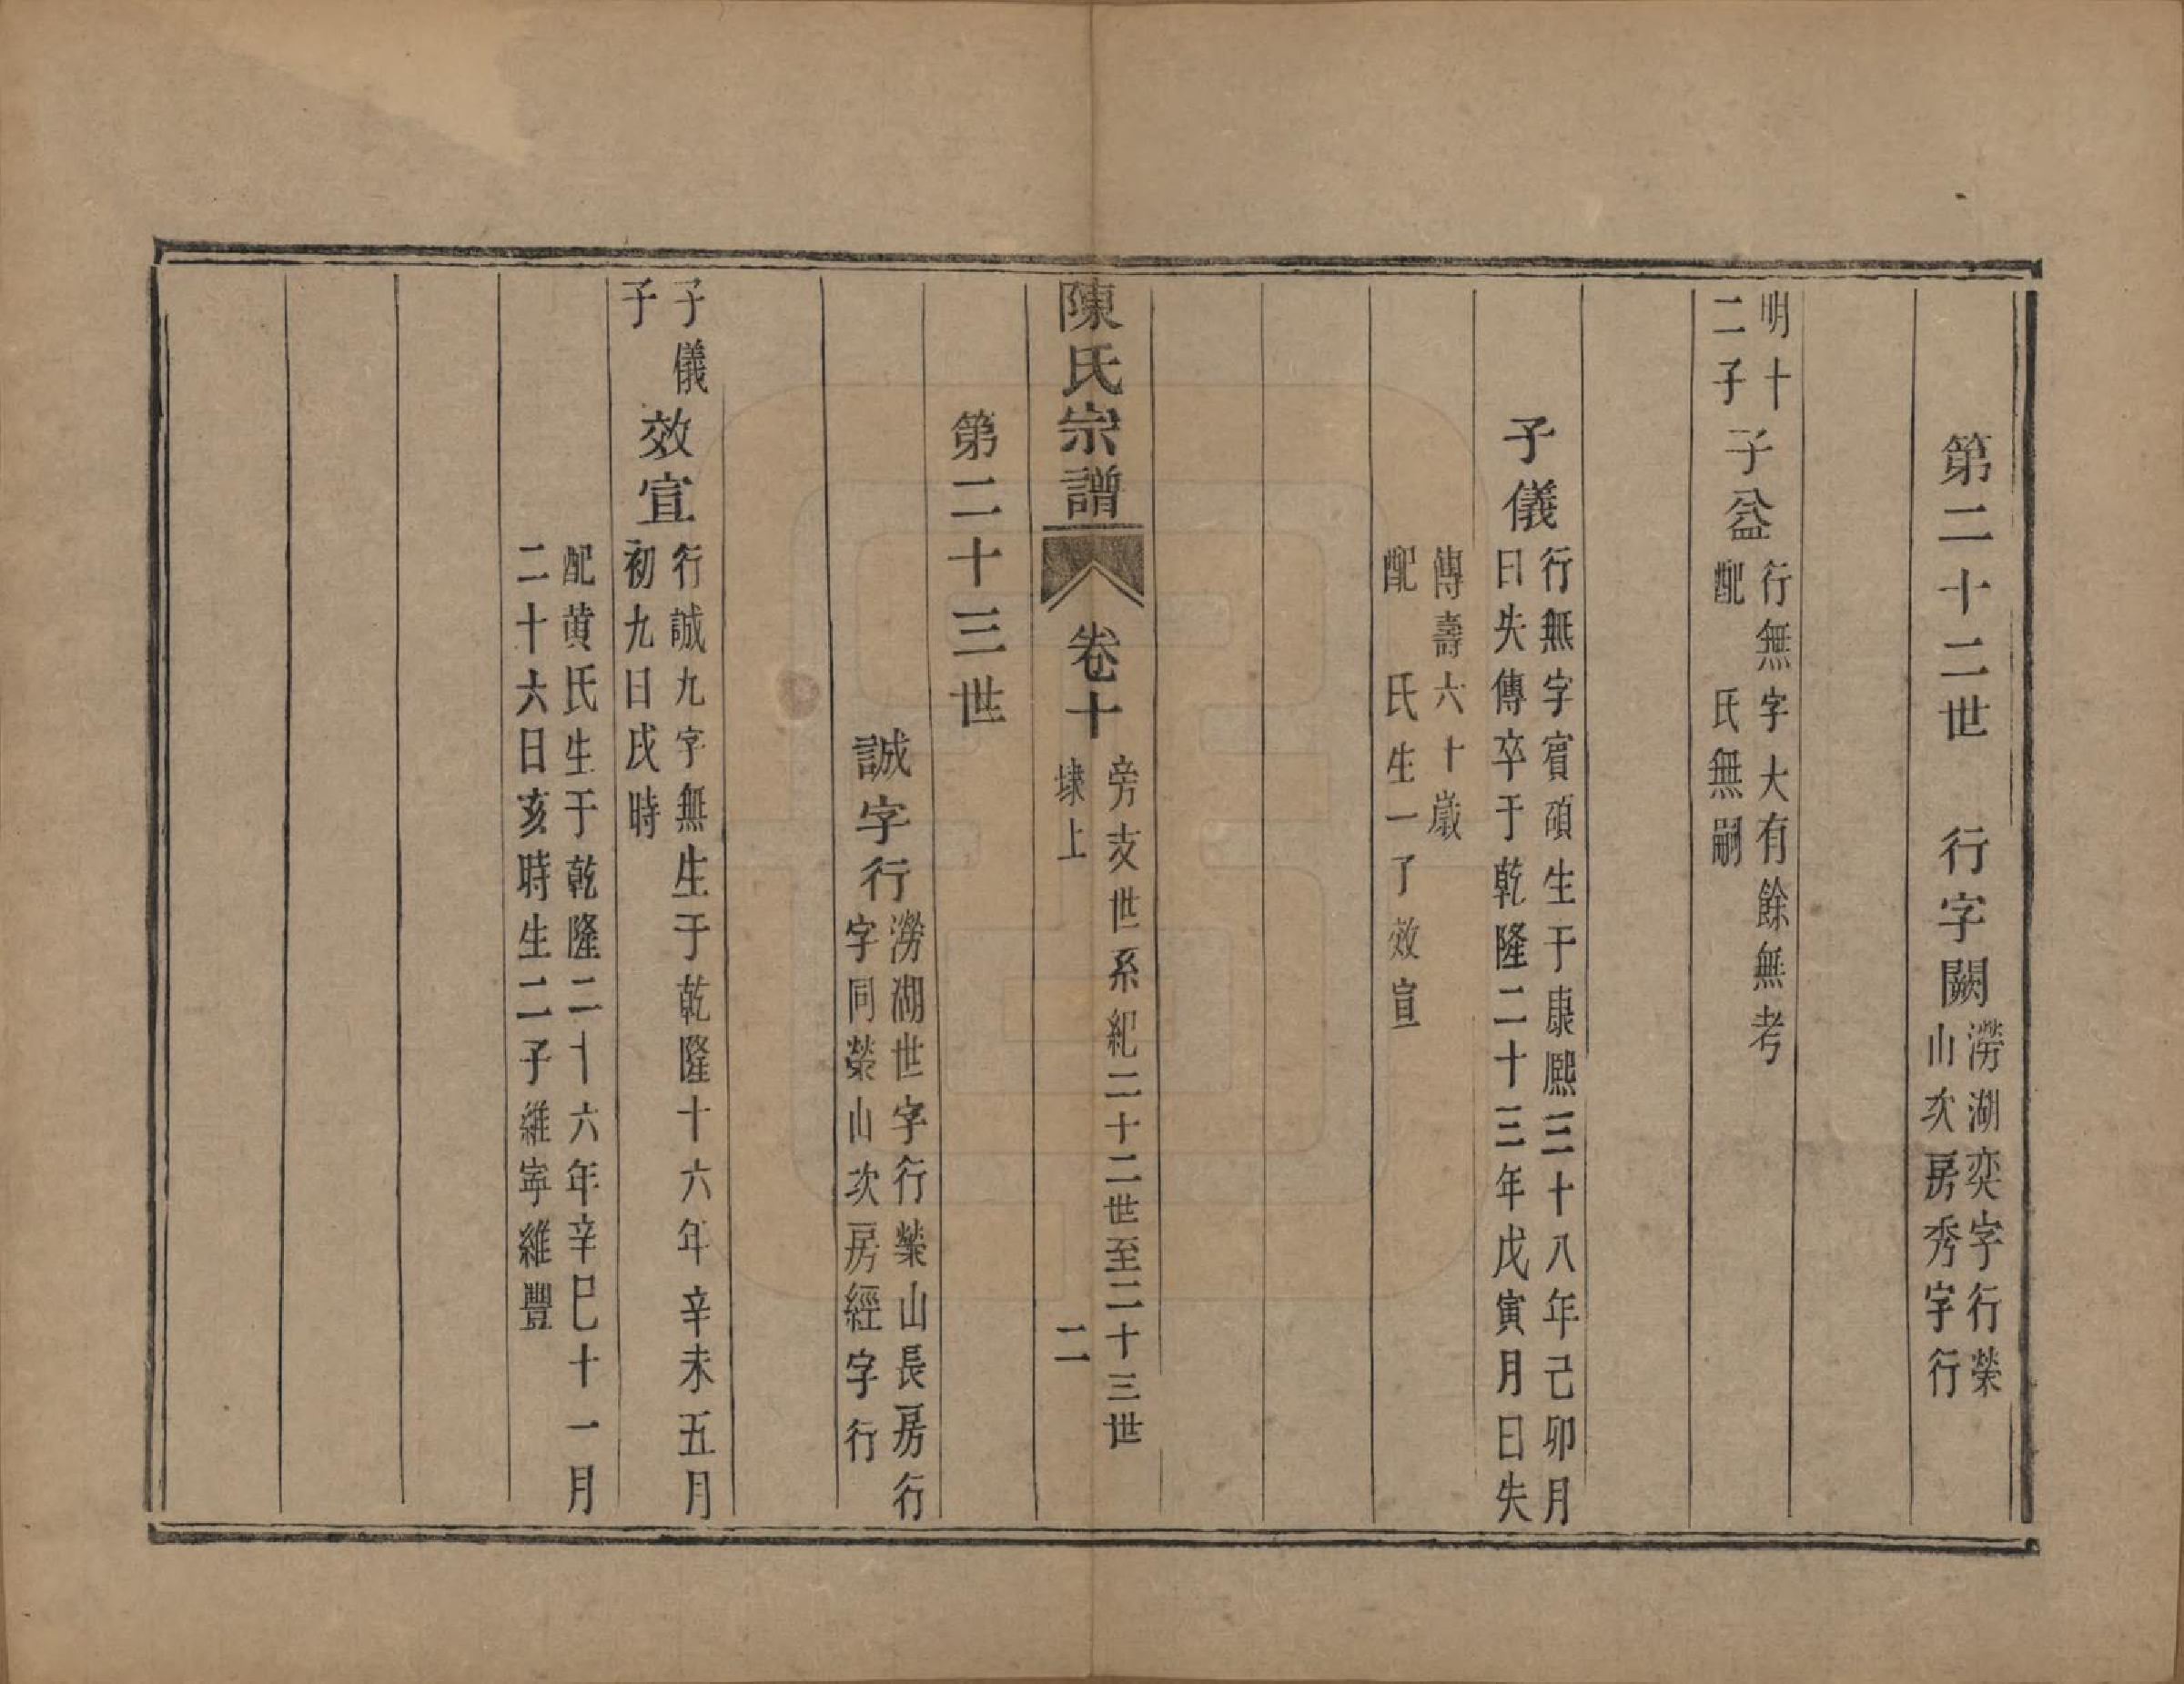 第二十二世　行字闕
澇湖奕字行榮
山次房秀字行
明十
二子
子益
行無字大有餘無考
配　氏無嗣
子儀
行無字賔碩生于康熙三十八年己卯月
日失傳卒于乾隆二十三年戊寅月日失
傳壽六十歲
配　氏生一了效宣
陳氏宗譜
卷十
旁支世系紀二十二世至二十三世
埭上
二
第二十三世
誠字行
澇湖世字行榮山長房行
字同榮山次房經字行
子儀
子
效宣
行誠九字無生于乾隆十六年辛未五月
初九日戌時
配黄氏生于乾隆二十六年辛巳十一月
二十六日亥時生二子維寧維豐